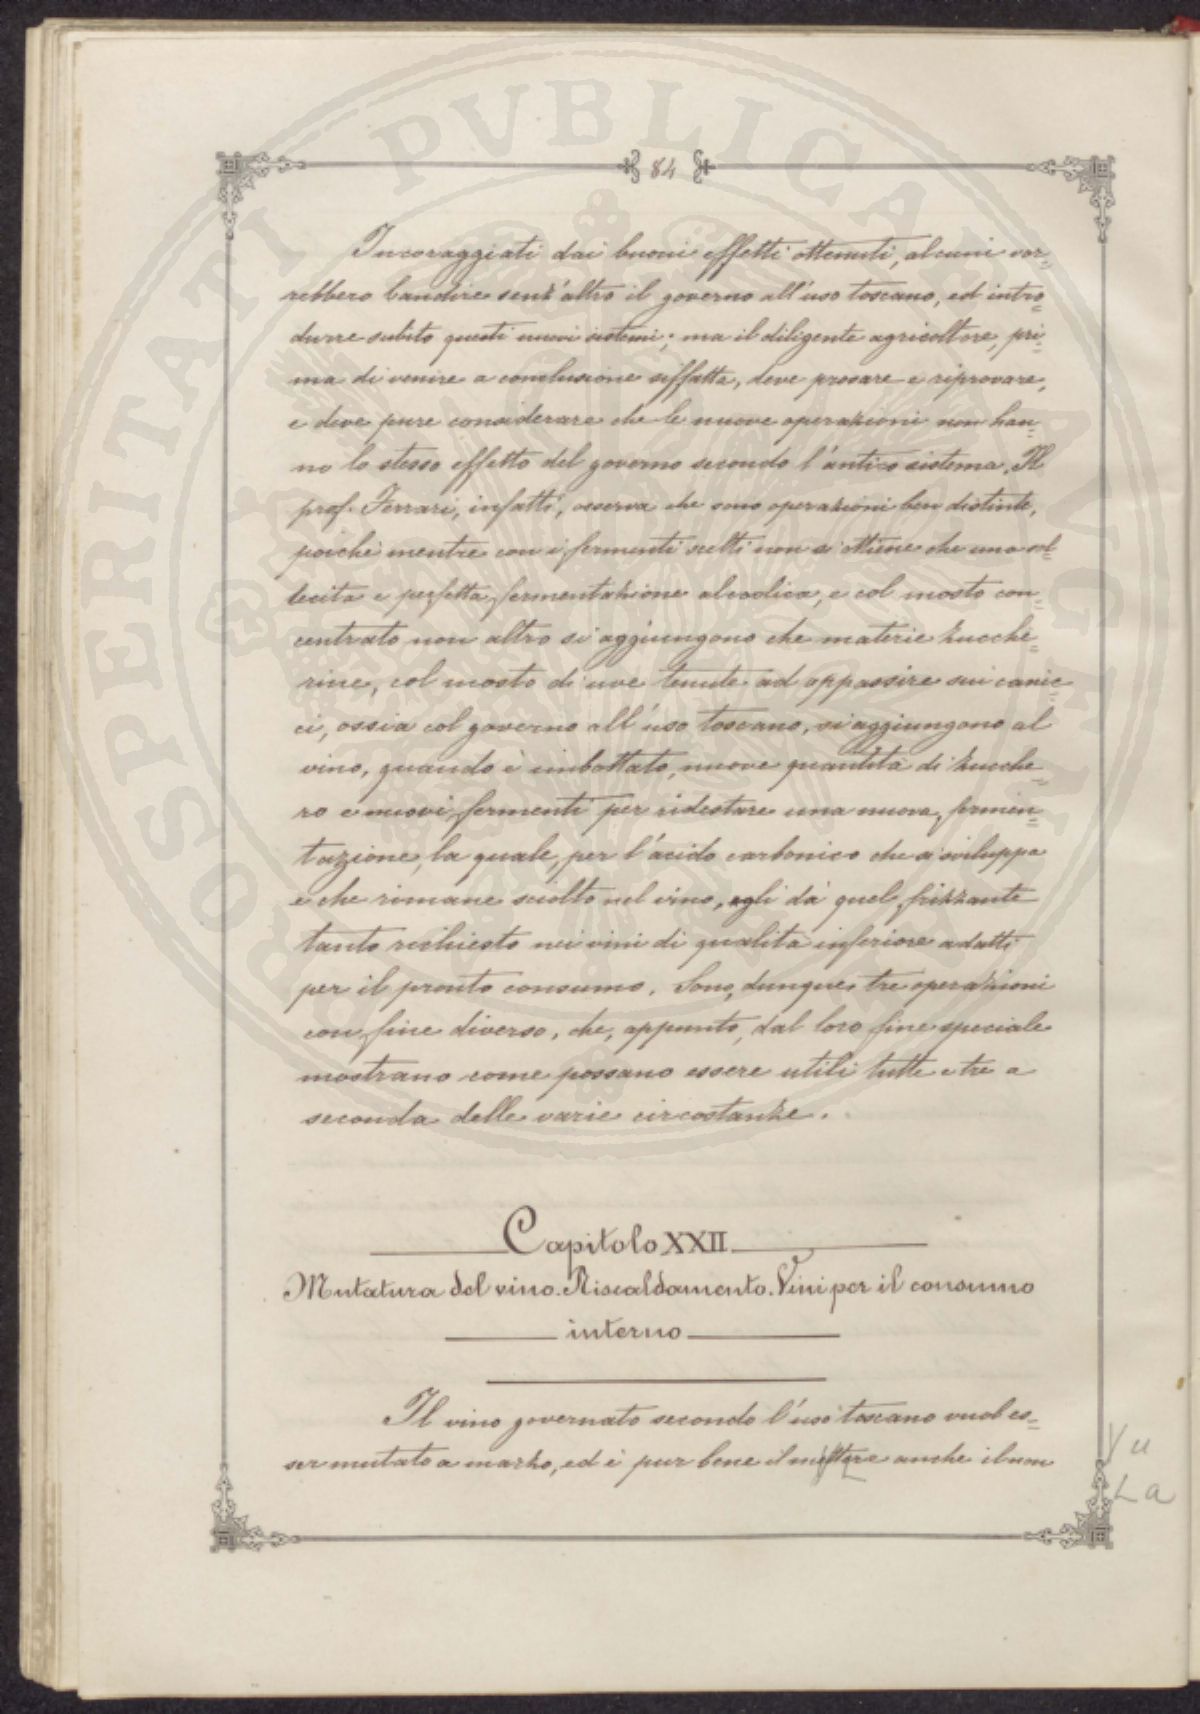 84
Incoraggiati dai buoni effetti ottenuti, alcuni vor=
rebbero bandire senz'altro il governo all'uso toscano, ed intro=
durre subito questi nuovi sistemi; ma il diligente agricoltore, pri=
ma di venire a conclusione siffatta, deve provare e riprovare,
e deve pure considerare che le nuove operazioni non han=
no lo stesso effetto del governo secondo l'antico sistema. Il
prof. Ferrari, infatti, osserva che sono operazioni ben distinte,
poichè mentre con i fermenti scelti non si ottiene che una sol=
lecita e perfetta fermentazione alcoolica, e col mosto con=
centrato non altro si aggiungono che materie zucche=
rine, col mosto di uve tenute ad appassire sui canic=
ci, ossia col governo all'uso toscano, si aggiungono al
vino, quando è imbottato, nuove quantità di zucche=
ro e nuovi fermenti per ridestare una nuova fermen=
tazione, la quale, per l'acido carbonico che si sviluppa
e che rimane sciolto nel vino, gli dà quel frizzante
tanto richiesto nei vini di qualità inferiore adatti
per il pronto consumo. Sono, dunque, tre operazioni
con fine diverso, che, appunto, dal loro fine speciale
mostrano come possano essere utili tutte e tre a
seconda delle varie circostanze.
Capitolo XXII
Mutatura del vino. Riscaldamento. Vini per il consumo
interno
Il vino governato secondo l'uso toscano vuol es=
ser mutato a marzo, ed è pur bene il mettere anche il non
u
L a
PROSPERITATI PUBLICAE AUGENDAE